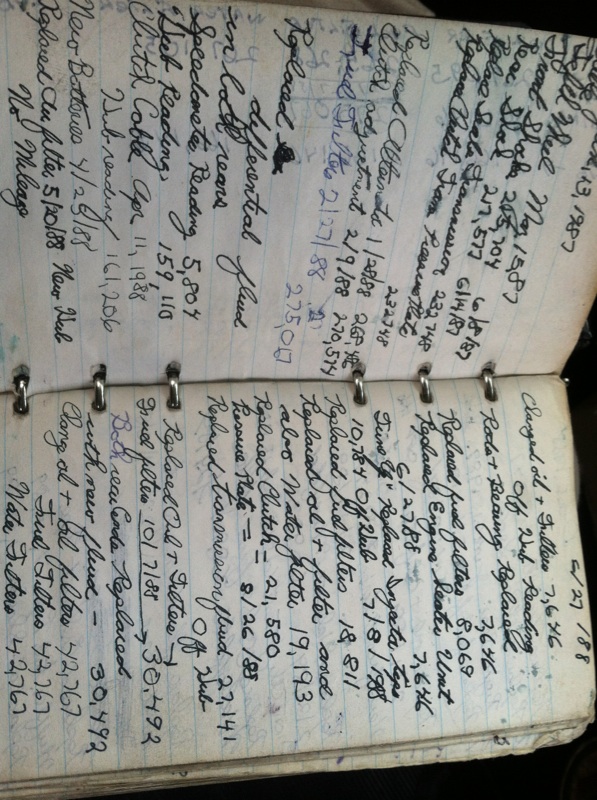 13, 1987
Wheel
Front Shocks May 15, 87
Rear Shocks 205,204
Replace Seals Transmission 6/8/87
217,577 6/14/87
Replaced Clutch 232,748
Replaced Alternator 1/28/88 232748
Clutch adjustment 2/9/88 270,574
Fuel Filters 2/27/88
275,017
Replaced
differential fluid
in both rears
Speedometer Reading 5,804
Hub Reading 159,110
Clutch Cable Apr 11, 1988
Hub reading 161,206
New Batteries 4/25/88
Replaced Air filter 5/30/88 New Hub
No Mileage
6/27/88
Changed oil + Filters 7,646
Off Hub Reading
Rods + Bearing Replaced
7,646
Replaced fuel filters 8,069
Replaced Engine Heater Unit
6/27/88 7,646
Replaced
10,784 Off Hub 7/8/88
Replaced fuel filters 18,811
Replaced oil + filter and
also Water filter 19,193
Replaced Clutch = 21,580
Pressure Plate = 8/26/88
Replaced transmission fluid 27,141
Off Hub
Replaced Oil + Filters →
Fuel filters 10/7/88 → 30,492
Both rear ends Replaced
with new fluid = 30,492
Chang oil + oil filters 42,767
Fuel Filters 42,767
Water Filters 42,767